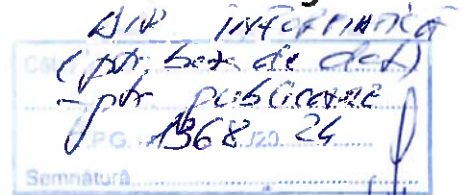 INFORMATICĂ
(ptr. baza de date)
- ptr publicare
P.G. 1368 /20 24
Semnătura